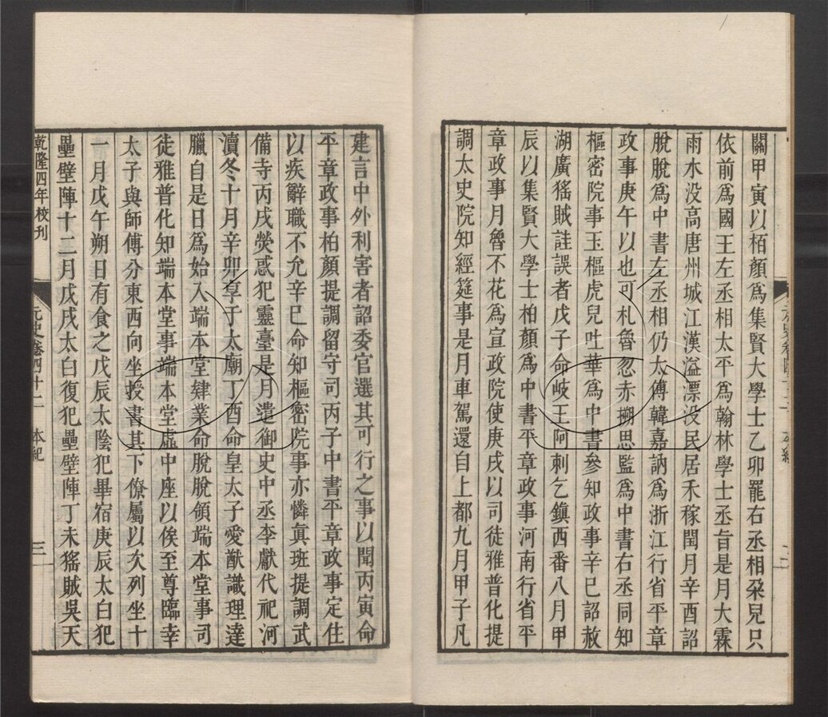 關甲寅以栢顏爲集賢大學士乙卯罷右丞相朶兒只
依前爲國王左丞相太平爲翰林學士丞旨是月大霖
雨水没高唐州城江漢溢漂没民居禾稼閏月辛酉詔
脫脫爲中書左丞相仍太傅韓嘉訥爲浙江行省平章
政事庚午以也可札魯忽赤搠思監爲中書右丞同知
樞密院事玉樞虎兒吐華爲中書參知政事辛巳詔赦
湖廣猺賊詿誤者戊子命岐王阿剌乞鎭西番八月甲
辰以集賢大學士柏顏爲中書平章政事河南行省平
章政事月魯不花爲宣政院使庚戌以司徒雅普化提
調太史院知經筵事是月車駕還自上都九月甲子凡
建言中外利害者詔委官選其可行之事以聞丙寅命
平章政事柏顏提調留守司丙子中書平章政事定住
以疾辭職不允辛巳命知樞密院事亦憐眞班提調武
備寺丙戌熒惑犯靈臺是月遣御史中丞李獻代祀河
瀆冬十月辛卯享于太廟丁酉命皇太子愛猷識理達
臘自是日爲始入端本堂肄業命脫脫領端本堂事司
徒雅普化知端本堂事端本堂虛中座以俟至尊臨幸
太子與師傅分東西向坐授書其下僚屬以次列坐十
一月戊午朔日有食之戊辰太陰犯畢宿庚辰太白犯
壘壁陣十二月戊戌太白復犯壘壁陣丁未猺賊吳天
乾隆四年校刊
元史卷四十二 本紀
三